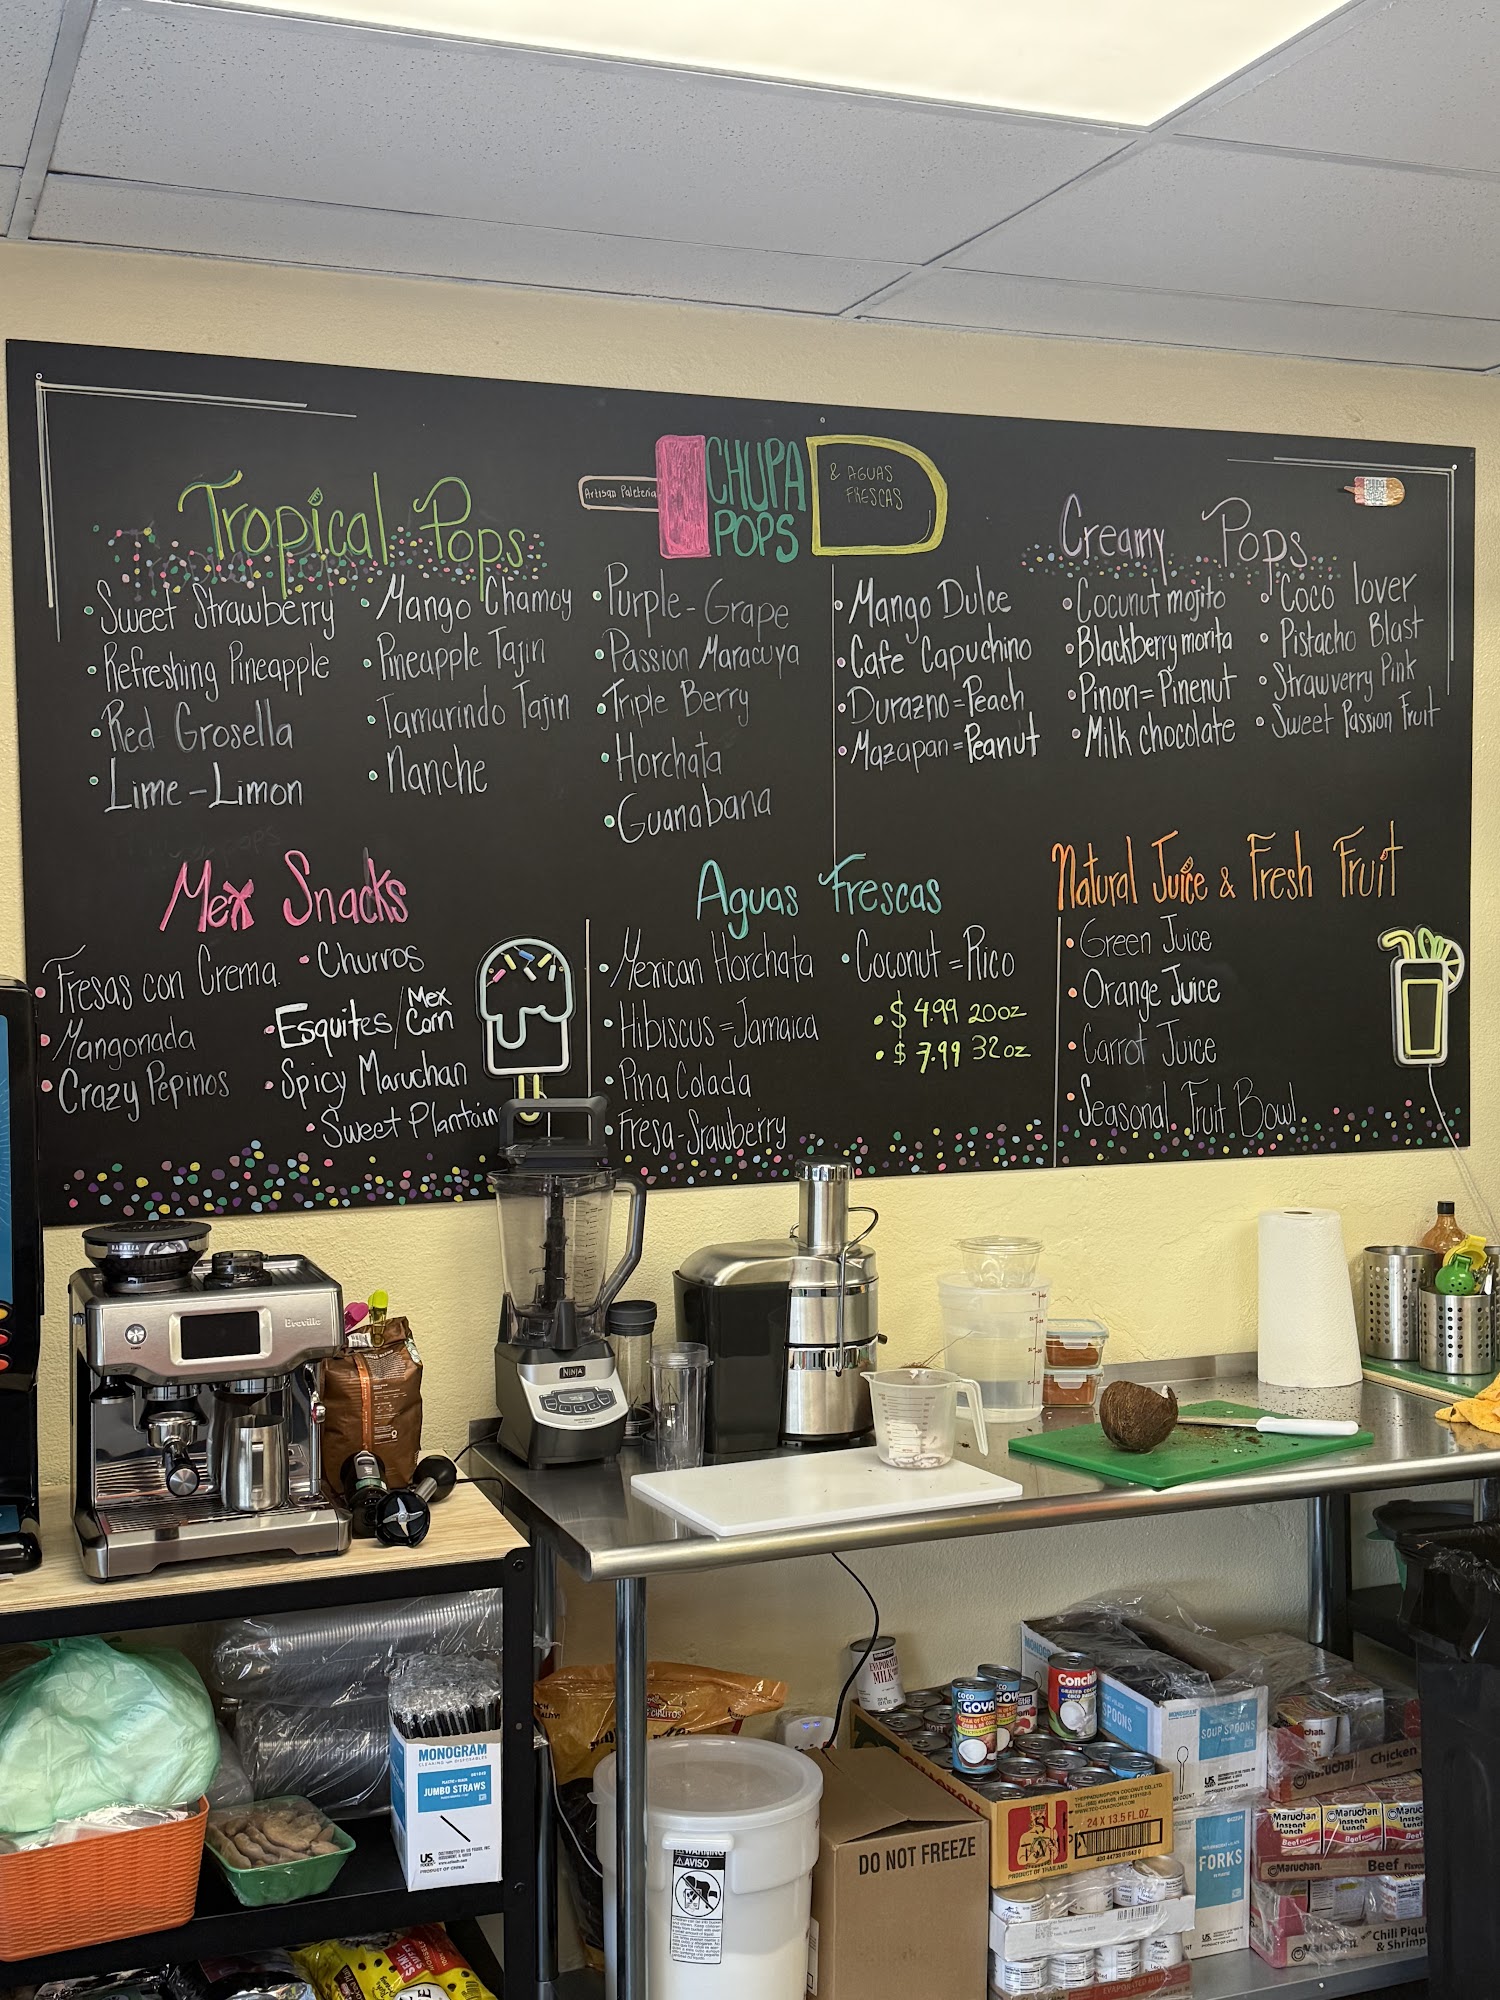 Artisan Paleteria
CHUPA
POPS
& AGUAS
FRESCAS
Tropical Pops
Sweet Strawberry
Refreshing Pineapple
Red Grosella
Lime-Limon
Mango Chamoy
Pineapple Tajin
Tamarindo Tajin
Nanche
Purple-Grape
Passion Maracuya
Triple Berry
Horchata
Guanabana
Creamy Pops
Mango Dulce
Cafe Capuchino
Durazno=Peach
Mazapan=Peanut
Cocunut mojito
Blackberry morita
Pinon=Pinenut
Milk chocolate
Coco lover
Pistacho Blast
Strawverry Pink
Sweet Passion Fruit
Mex Snacks
Fresas con Crema
Mangonada
Crazy Pepinos
Churros
Esquites/Mex
Corn
Spicy Maruchan
Sweet Plantain
Aguas Frescas
Mexican Horchata
Hibiscus=Jamaica
Pina Colada
Fresa-Srawberry
Coconut=Rico
$4.99 20oz
$7.99 32oz
Natural Juice & Fresh Fruit
Green Juice
Orange Juice
Carrot Juice
Seasonal Fruit Bowl
BARATZA
Breville
NINJA
MONOGRAM
JUMBO STRAWS
US FOODS
PRODUCT OF CHINA
WARNING
AVISO
DO NOT FREEZE
EVAPORATED
MILK
COCO
GOYA
Conchita
24 X 13.5 FL.OZ.
PRODUCT OF THAILAND
MONOGRAM
SPOONS
SOUP SPOONS
FORKS
Maruchan
Chicken
Maruchan
Instant
Lunch
Beef
Maruchan
Beef
Maruchan
Chili Piquin
& Shrimp